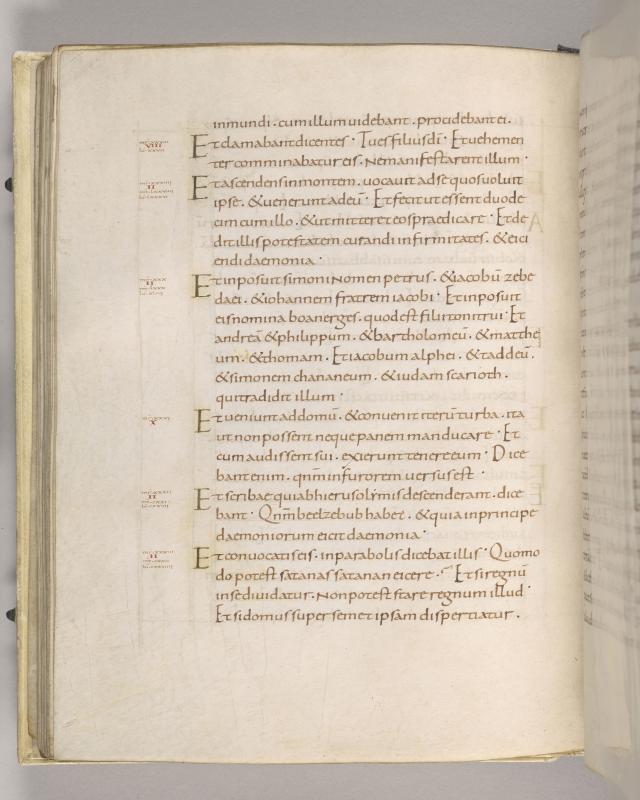 inmundi . cum illum uidebant . procidebant ei .
VIII
Et clamabant dicentes · Tu es filius dī · Et uehemen
ter comminabatur eis . Ne manifestarent illum ·
II
Et ascendens in montem . uocauit ad se quos uoluit
ipse . & uenerunt ad eū · Et fecit ut essent duode
cim cum illo . & ut mitteret eos praedicare · Et de
dit illis potestatem curandi infirmitates . & eici
endi daemonia ·
II
Et inposuit simoni Nomen petrus . & iacobū zebe
daei . & iohannem fratrem iacobi · Et inposuit
eis nomina boanerges . quod est filii tonitrui · Et
andreā & philippum . & bartholomeū . & matthe
um . & thomam . Et iacobum alphei . & taddeū .
& simonem chananeum . & iudam scarioth .
qui tradidit illum ·
X
Et ueniunt ad domū . & conuenit iterū turba . ita
ut non possent neque panem manducare · Et
cum audissent sui . exierunt tenere eum · Dice
bant enim . qnm in furorem uersus est ·
II
Et scribae qui ab hierusolimis descenderant . dice
bant · Qnm beelzebub habet . & quia in principe
daemoniorum eicit daemonia ·
II
Et conuocatis eis . in parabolis dicebat illis · Quomo
do potest satanas satanan eicere · Et si regnū
in se diuidatur . Non potest stare regnum illud ·
Et si domus super semet ipsam dispertiatur .